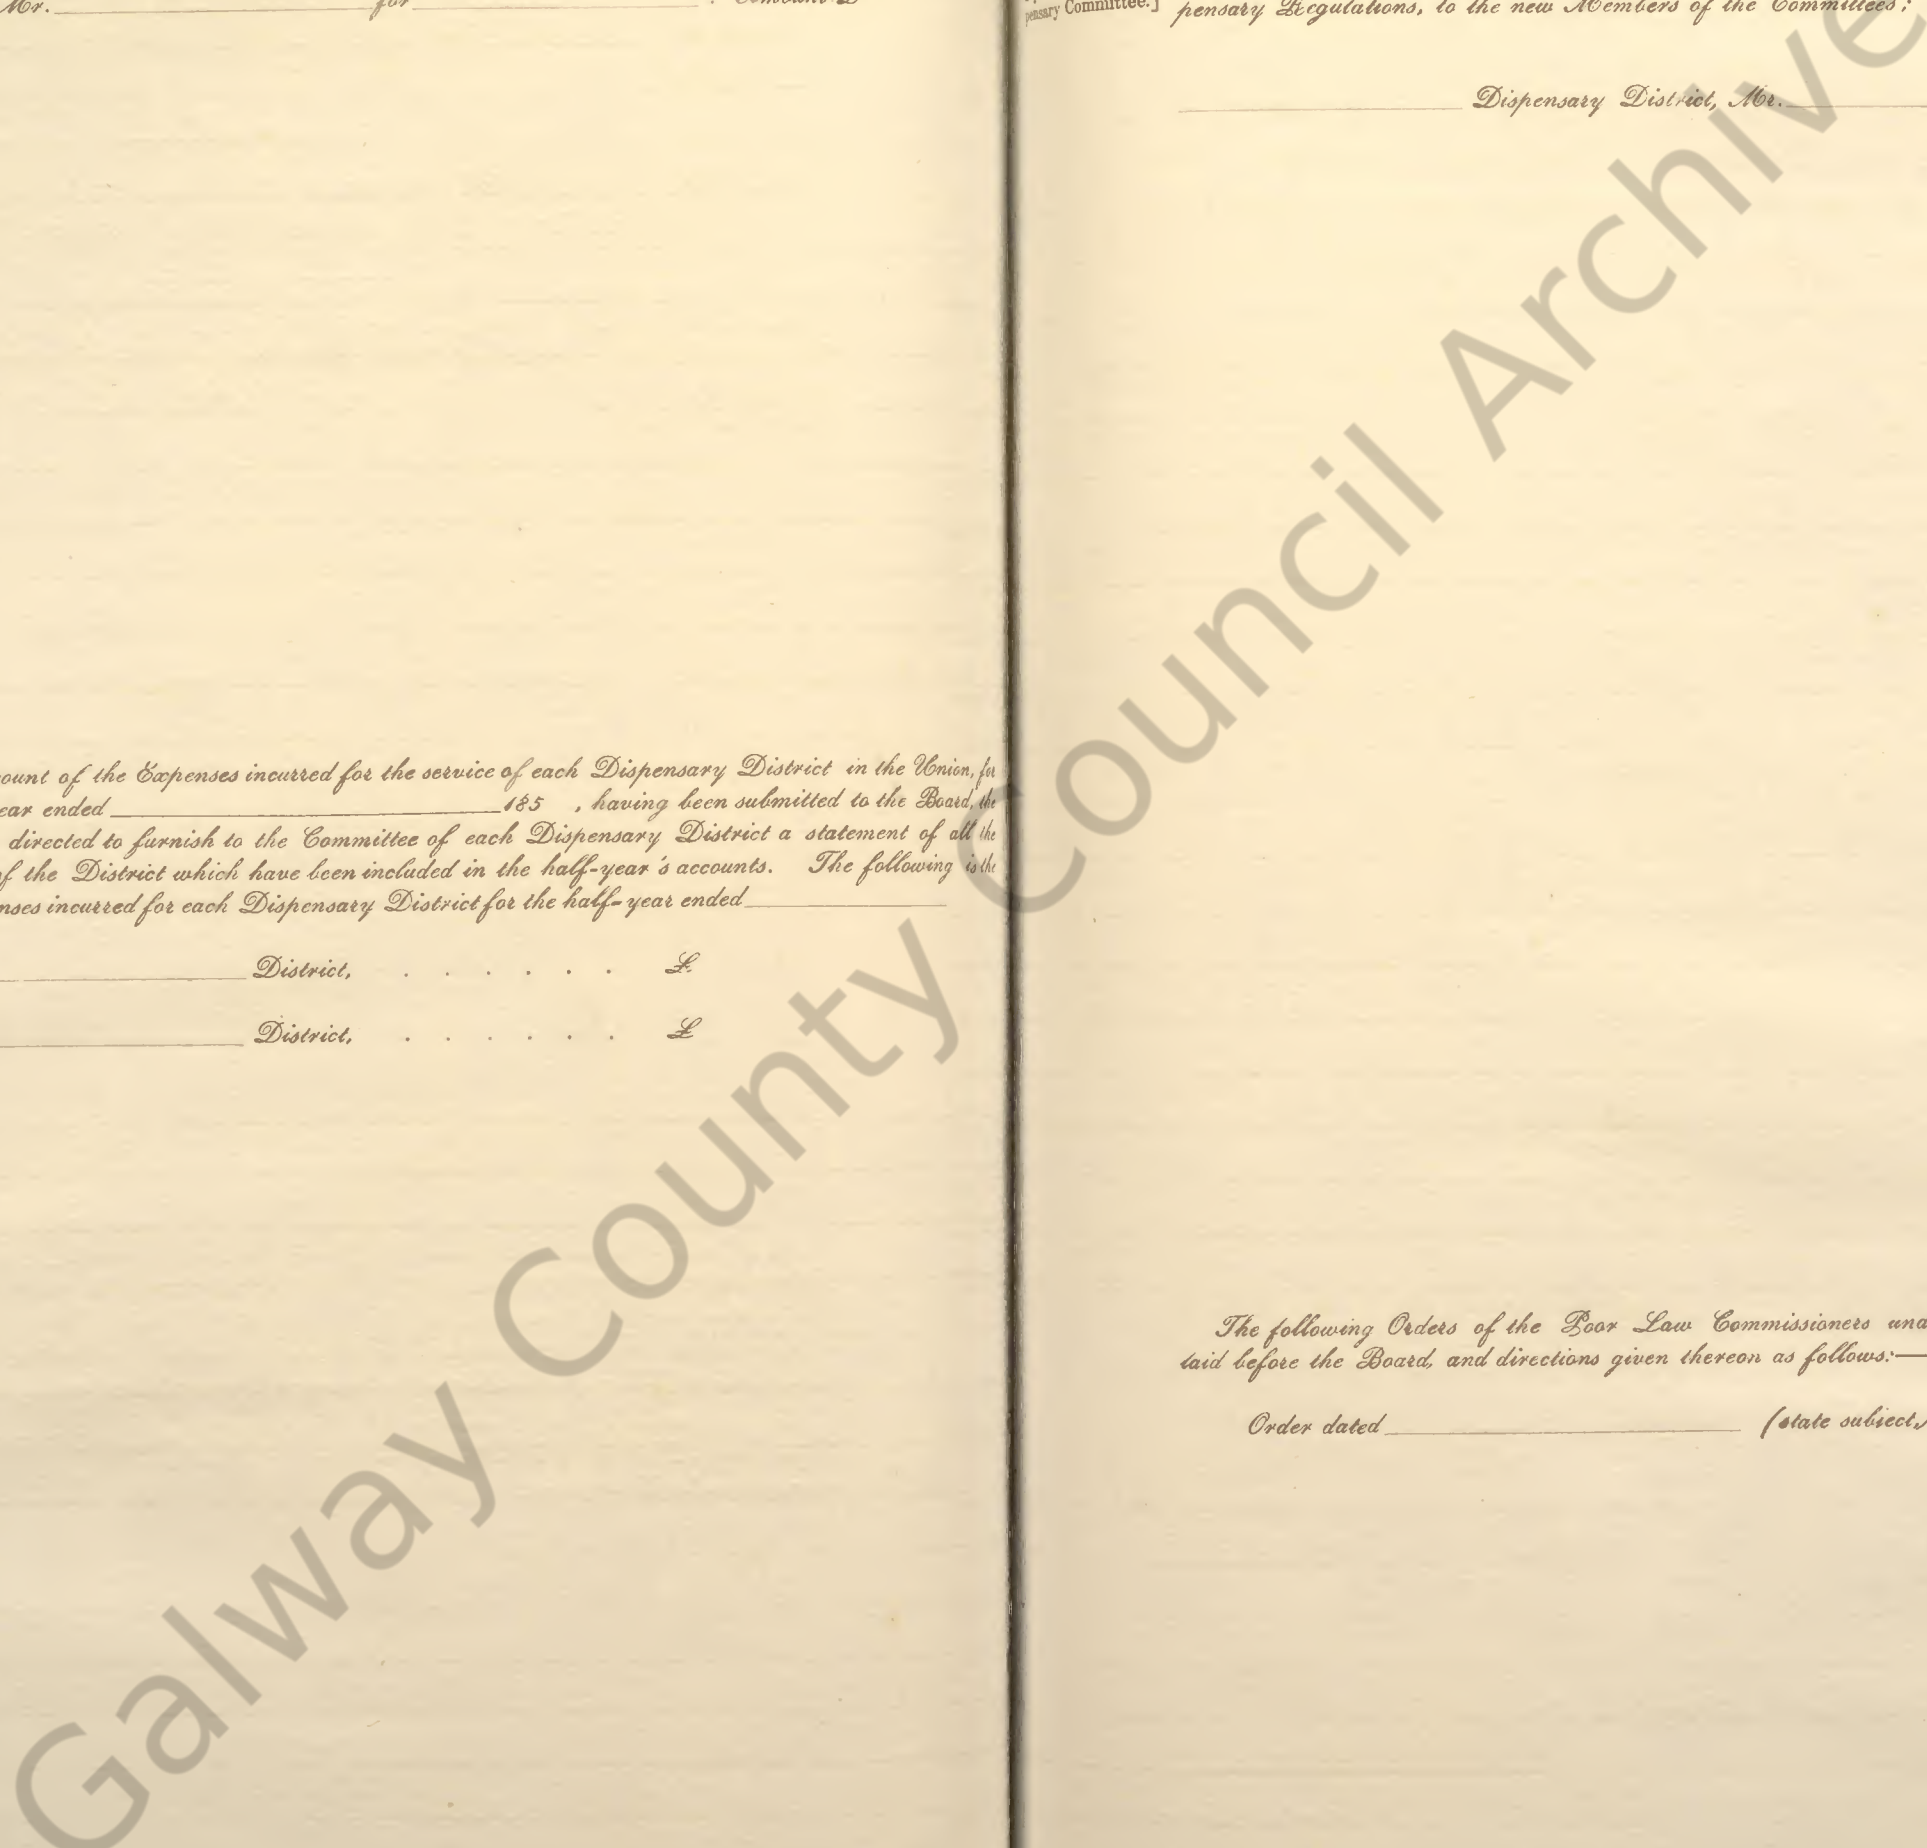 Mr. for
ount of the Expenses incurred for the service of each Dispensary District in the Union, for
ear ended 185 , having been submitted to the Board, the
directed to furnish to the Committee of each Dispensary District a statement of all the
of the District which have been included in the half-year's accounts. The following is the
nses incurred for each Dispensary District for the half-year ended
District, . . . . . . £
District, . . . . . . £
pensary Committee.]
pensary Regulations, to the new Members of the Committees:
Dispensary District, Mr.
The following Orders of the Poor Law Commissioners and
laid before the Board, and directions given thereon as follows:—
Order dated (state subject,
Galway County Council Archive